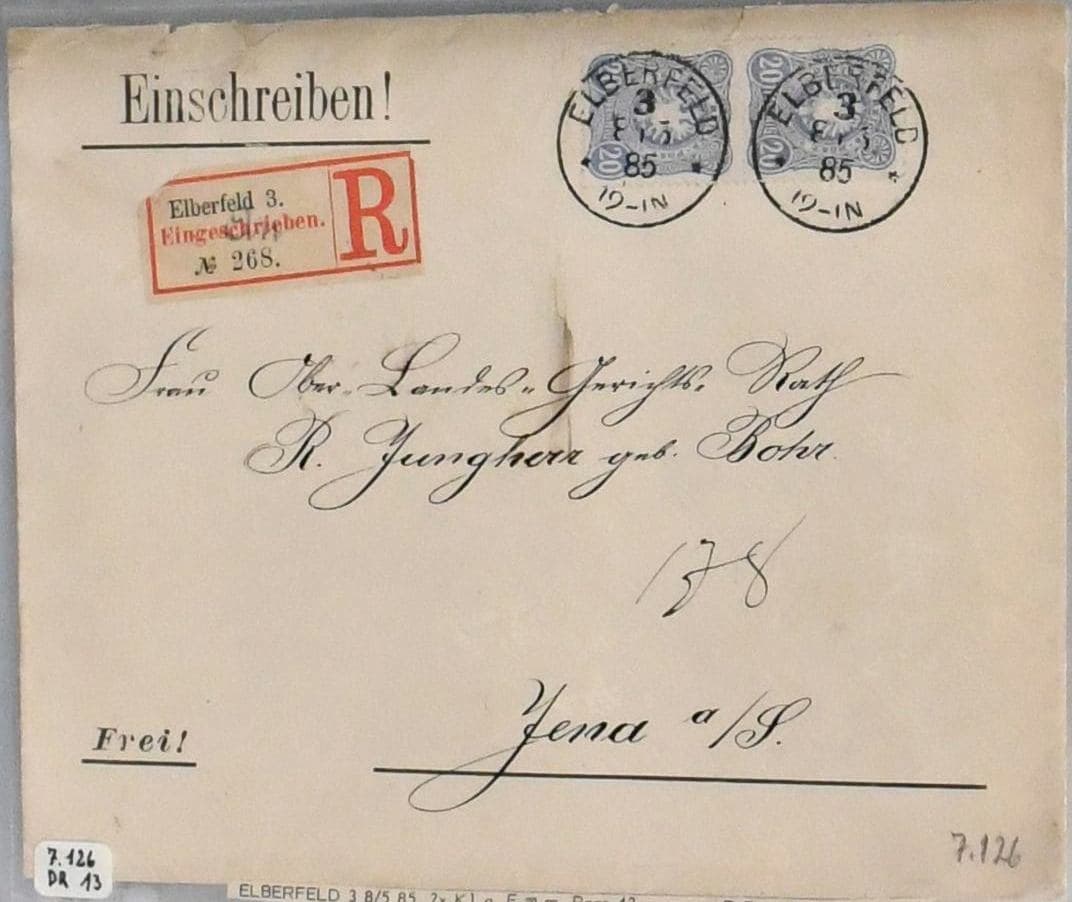 Einschreiben!
ELBERFELD
3
8/5
85
12-1N
ELBERFELD
3
8/5
85
12-1N
20
20
20
20
Elberfeld 3.
Eingeschrieben.
№ 268.
R
Frau Ober-Landes-Gerichts-Rath
R. Jungherr geb. Bohr.
178
Jena a/S.
Frei!
7.126
7.126
DR 13
ELBERFELD 3 8/5 85